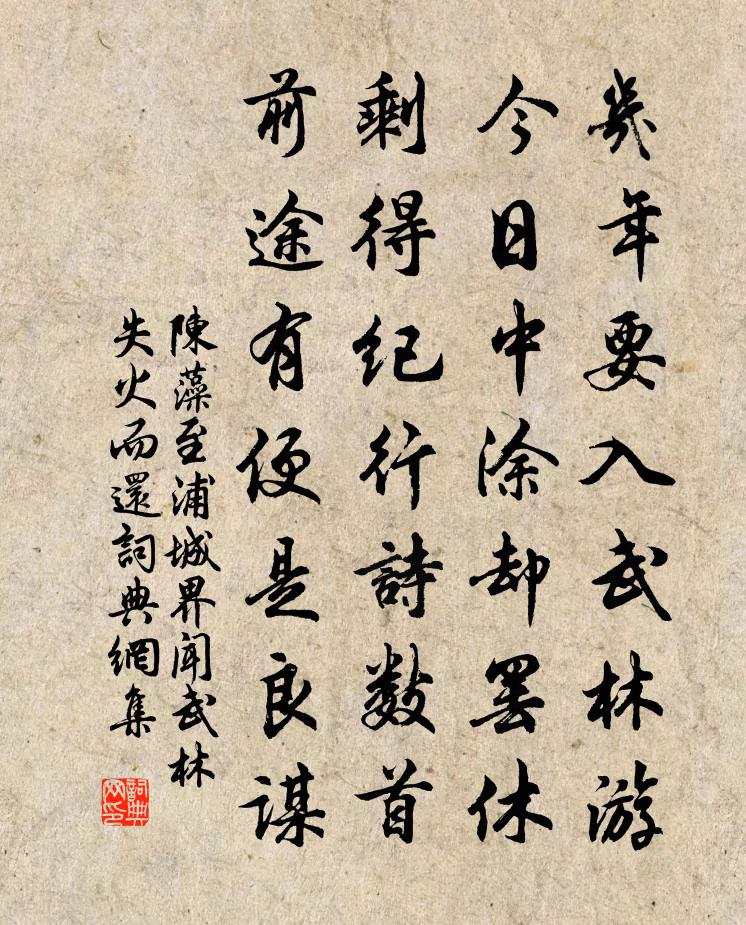 幾年要入武林游
今日中涂却罢休
剩得紀行詩數首
前途有便是良謀
陳藻至浦城界聞武林
失火而還詞典網集
詞典网印